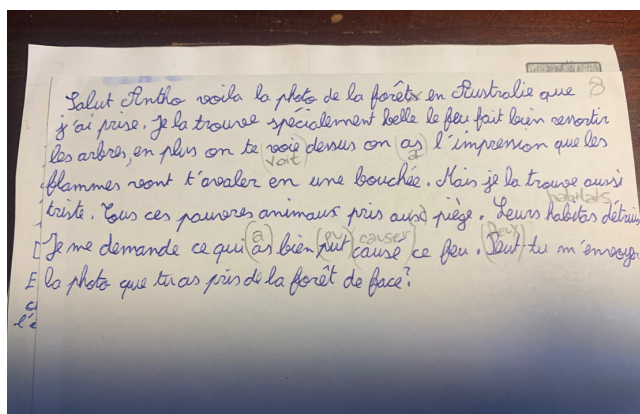 8
Salut Antho voila la photo de la forêts en Australie que
j'ai prise. Je la trouve spécialement belle le feu fait bien ressortir
les arbres, en plus on te (voie) dessus on (as) l'impression que les
voit a
flammes vont t'avaler en une bouchée. Mais je la trouve aussi
habitats
triste. Tous ces pauvres animaux pris aux piège. Leurs habitas détruis
a pu causer Peux
Je me demande ce qui (as) bien (put) (causé) ce feu. (Peut)-tu m'envoyer
E la photo que tu as pris de la forêt de face?
l'